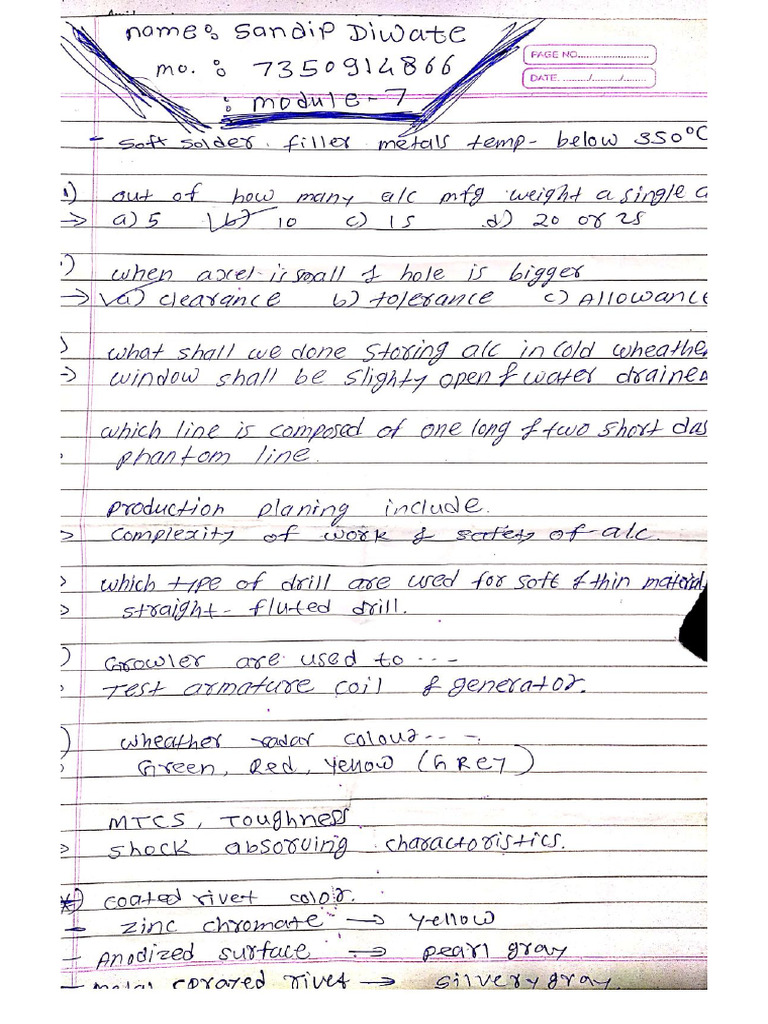 name: Sandip Diwate
PAGE NO.
mo. : 7350914866
DATE. / /
: module-7
- Soft solder filler metals temp- below 350°C
1) out of how many a/c mfg weight a single a
→ a) 5 b) 10 c) 15 d) 20 or 25
when axel is small & hole is bigger
→ a) clearance b) tolerance c) Allowance
what shall we done storing a/c in cold wheather
→ window shall be slighty open & water drained
which line is composed of one long & two short das
phantom line.
production planing include.
complexity of work & safety of a/c.
which type of drill are used for soft & thin material
straight-fluted drill.
Growler are used to ---
Test armature coil & generator.
wheather radar colour ---
Green, Red, Yellow (GREY)
MTCS, Toughness
shock absorving charactoristics.
*) coated rivet color.
- zinc chromate → yellow
- Anodized surface → pearl gray
- Metal sprayed rivet → silvery gray.